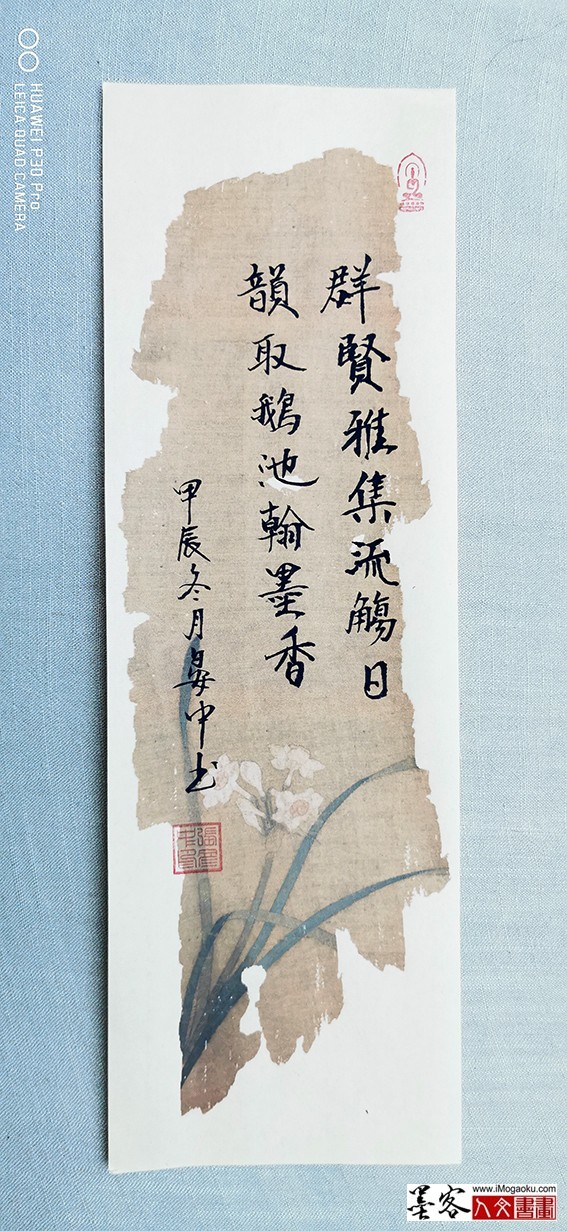 群賢雅集流觴日
韻取鵝池翰墨香
甲辰冬月晏中书
HUAWEI P30 Pro
LEICA QUAD CAMERA
墨客
www.iMogaoku.com
人文書畫